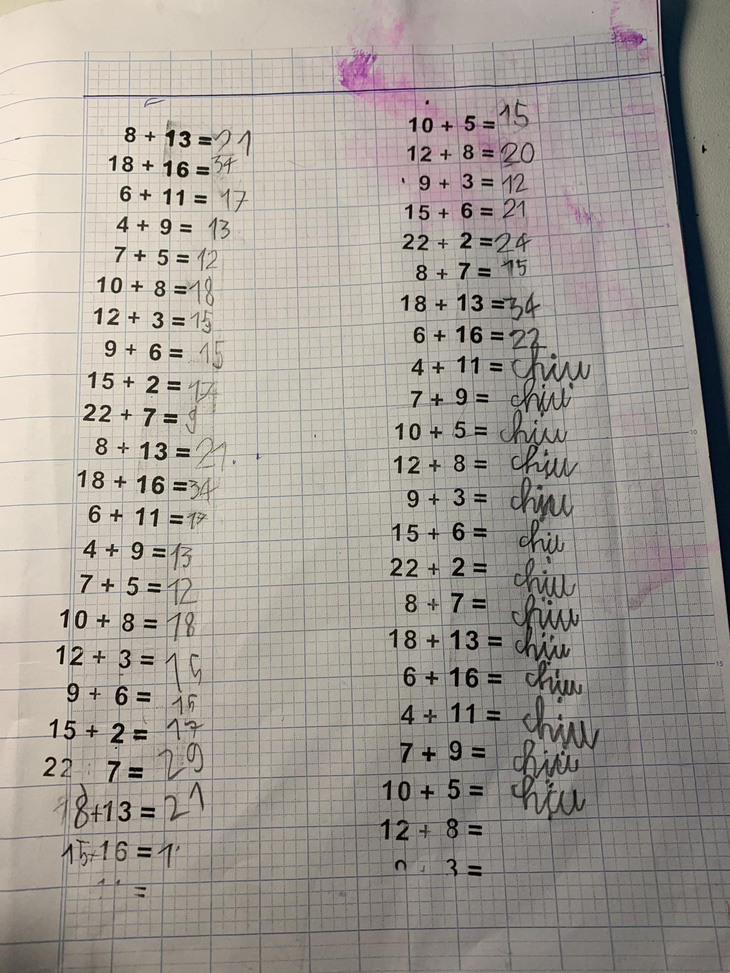 8 + 13 = 21
18 + 16 = 34
6 + 11 = 17
4 + 9 = 13
7 + 5 = 12
10 + 8 = 18
12 + 3 = 15
9 + 6 = 15
15 + 2 = 17
22 + 7 = 9
8 + 13 = 21
18 + 16 = 34
6 + 11 = 17
4 + 9 = 13
7 + 5 = 12
10 + 8 = 18
12 + 3 = 15
9 + 6 = 15
15 + 2 = 17
22 7 = 29
8+13 = 21
15+16 = 1
=
10 + 5 = 15
12 + 8 = 20
9 + 3 = 12
15 + 6 = 21
22 + 2 = 24
8 + 7 = 15
18 + 13 = 34
6 + 16 = 22
4 + 11 = chịu
7 + 9 = chịu
10 + 5 = chịu
12 + 8 = chịu
9 + 3 = chịu
15 + 6 = chịu
22 + 2 = chịu
8 + 7 = chịu
18 + 13 = chịu
6 + 16 = chịu
4 + 11 = chịu
7 + 9 = chịu
10 + 5 = chịu
12 + 8 =
3 =
10
15